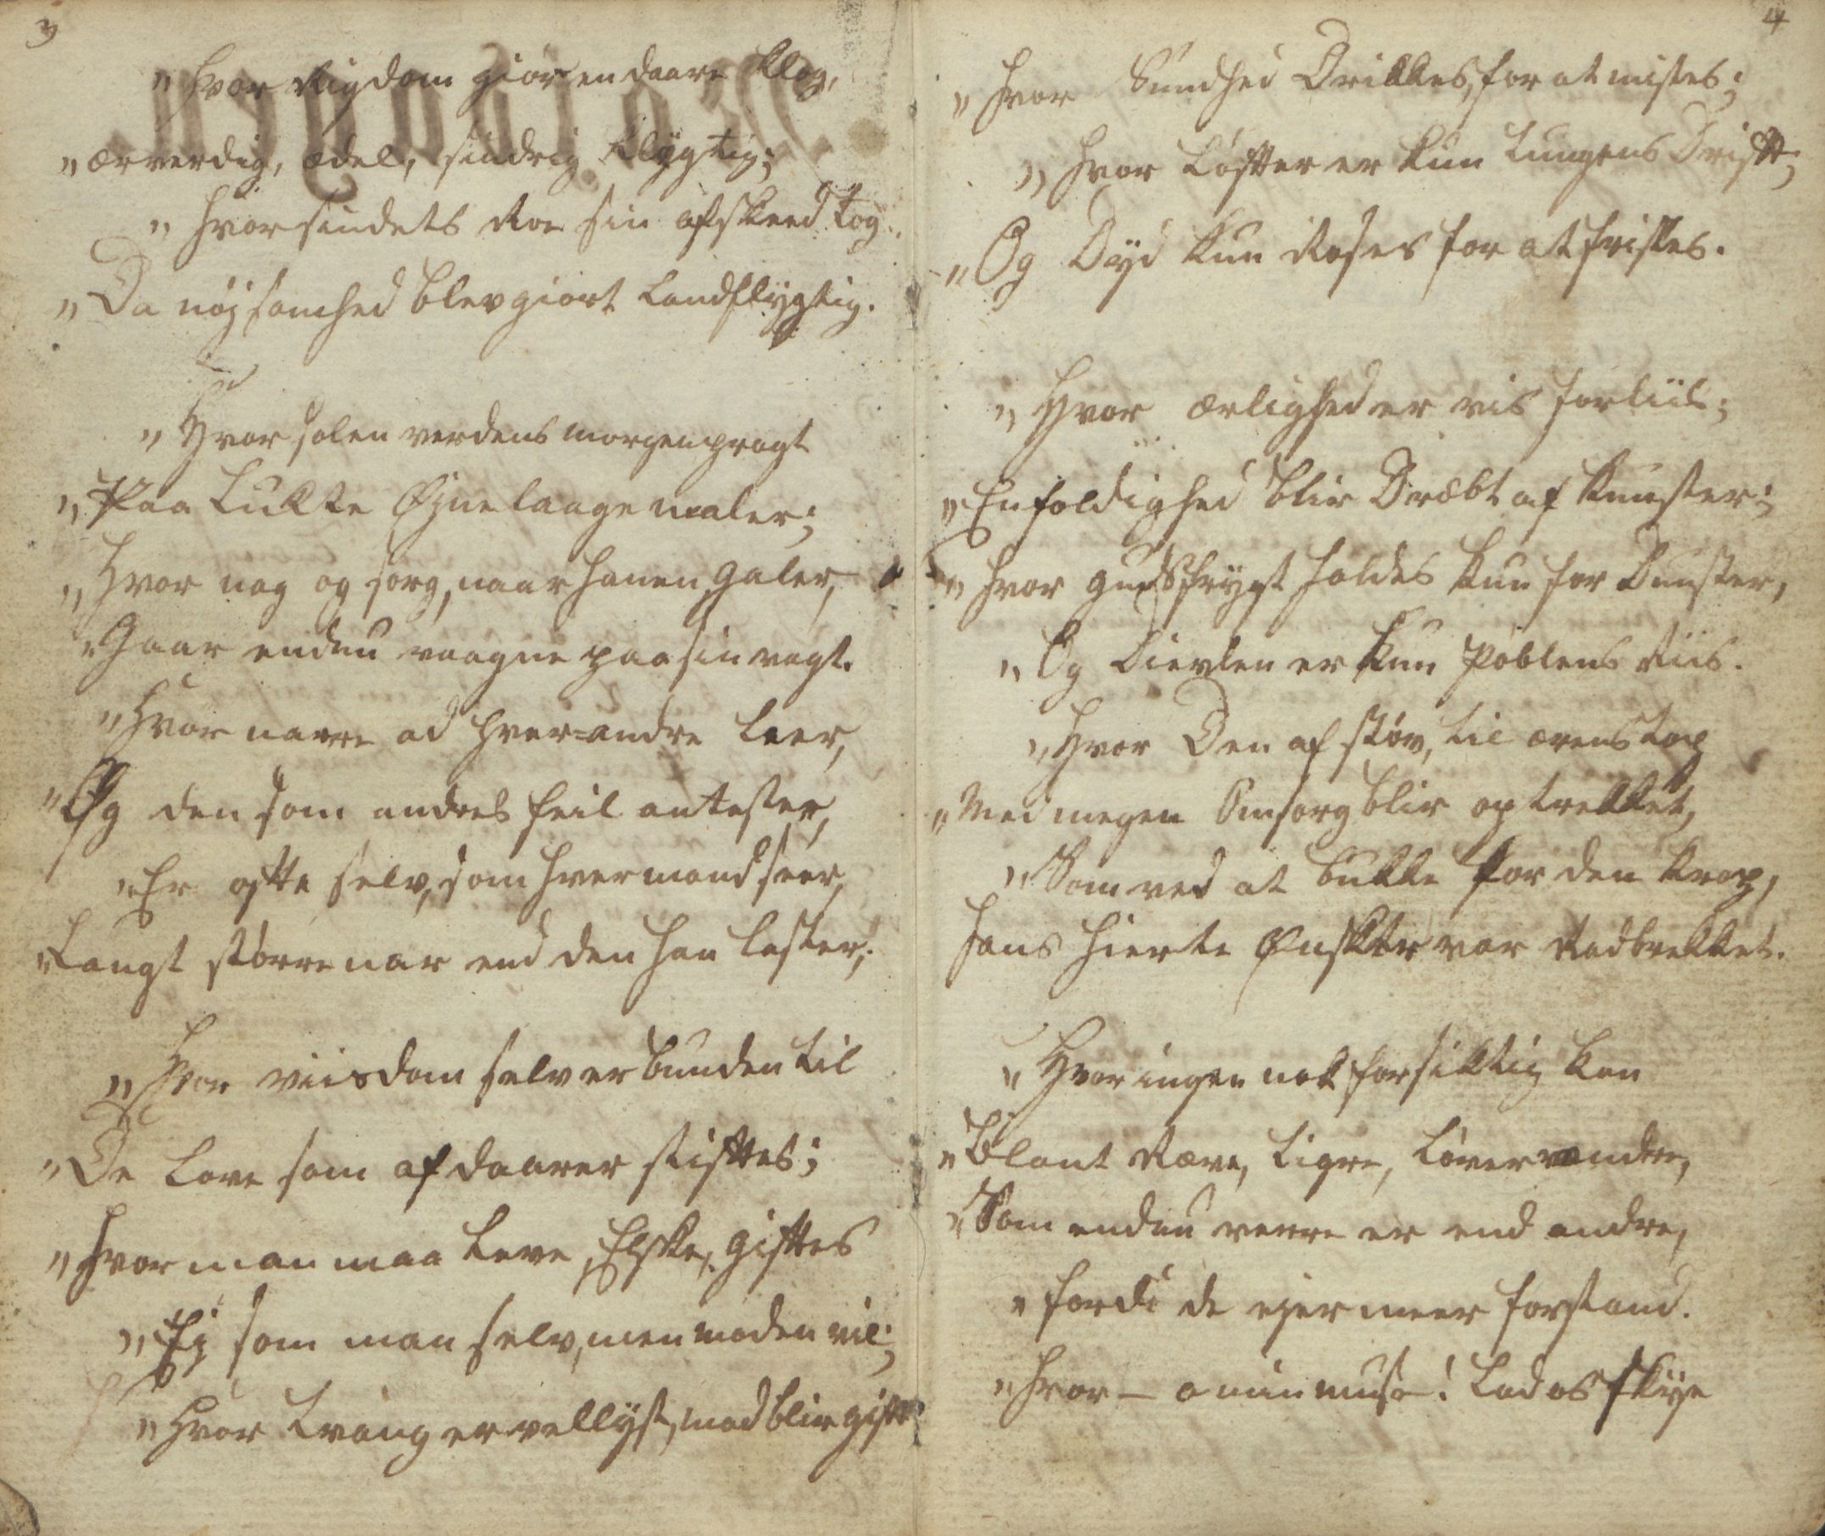 3
„ hvor Rigdom giör en daare klog,
„ ærverdig, ædel, sindrig kløgtig;
„ hvor sindets Roe sin afskeed tog.
„ Da nøjsomhed blev giort Landflygtig.
„ Hvor solen verdens morgenpragt
„ Paa Lukte Øjnelaage maler;
„ Hvor nag og sorg, naar hanen galer,
„ Gaar endnu vaagne paa sin vagt.
„ Hvor narre ad hver-andre Leer,
„ Og den som andres feil antaster,
„ Er ofte selv, som hvermand seer,
„ Langt större nar end den han laster;
„ Hvor viisdom selv er bunden til
„ De Love som af daarer stiftes;
„ hvor man maa Leve, Elske, giftes
„ Ej som man selv, men moden vil;
„ Hvor tvang er vellyst, mad blir gift
4
„ hvor Sundhed Drikkes, for at mistes;
„ hvor Löfter er kun Tungens Drift;
„ Og Dyd kun Roses for at fristes.
„ Hvor ærlighed er vis forliis;
„ Enfoldighed blir Dræbt af kunster;
„ hvor gudsfrygt holdes kun for Dunster,
„ Og Dievlen er kun Pöblens Riis.
„ Hvor Den af støv, til ærens top
„ Med megen Omsorg blir optrekket,
„ Som ved at bukke for den krop,
hans hierte Ønsker var Radbrekket.
„ Hvor ingen nok forsiktig kan
„ Blant Ræve, Tigre, Löver vandre,
„ Som endnu verre er end andre,
„ fordi de ejer meer forstand.
„ hvor – o min muse! Lad os skye